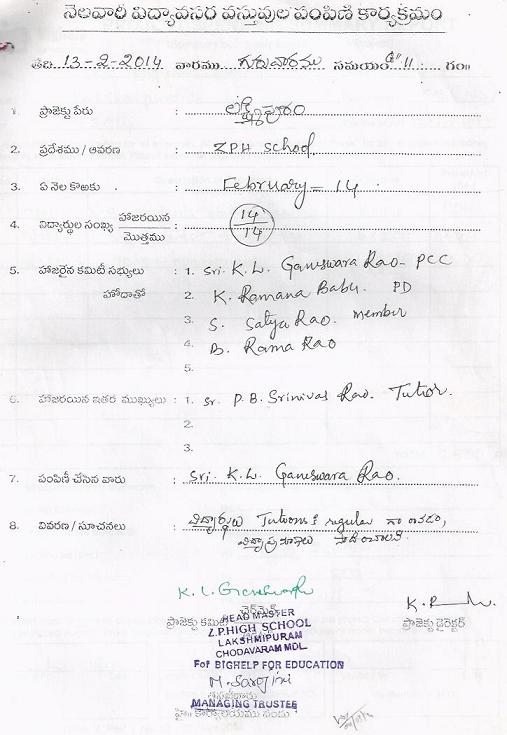 నెలవారీ విద్యావసర వస్తువుల పంపిణి కార్యక్రమం
తేది 13-2-2014 వారము గురువారము సమయం ఉ॥ 11 గం॥
1. ప్రాజెక్టు పేరు : లక్ష్మీపురం
2. ప్రదేశము / ఆవరణ : ZPH School
3. ఏ నెల కొఱకు : February - 14
4. విద్యార్థుల సంఖ్య హాజరయిన / మొత్తము : 14/14
5. హాజరైన కమిటీ సభ్యులు : 1. Sri. K.L. Ganeswara Rao - PCC
హోదాతో 2. K. Ramana Babu. PD
3. S. Satya Rao. member
4. B. Rama Rao
5.
6. హాజరయిన ఇతర ముఖ్యులు : 1. Sr. P.B. Srinivas Rao. Tutor.
2.
3.
7. పంపిణీ చేసిన వారు : Sri. K.L. Ganeswara Rao.
8. వివరణ / సూచనలు : విద్యార్థులు Tutions కి regular గా రావడం,
సాధించాలని.
K. L. Ganeswarao
ప్రాజెక్టు కమిటీ ఛైర్మెన్
ప్రాజెక్టు డైరెక్టర్
HEAD MASTER
Z.P.HIGH SCHOOL
LAKSHMIPURAM
CHODAVARAM MDL.
For BIGHELP FOR EDUCATION
M. Sarojini
MANAGING TRUSTEE